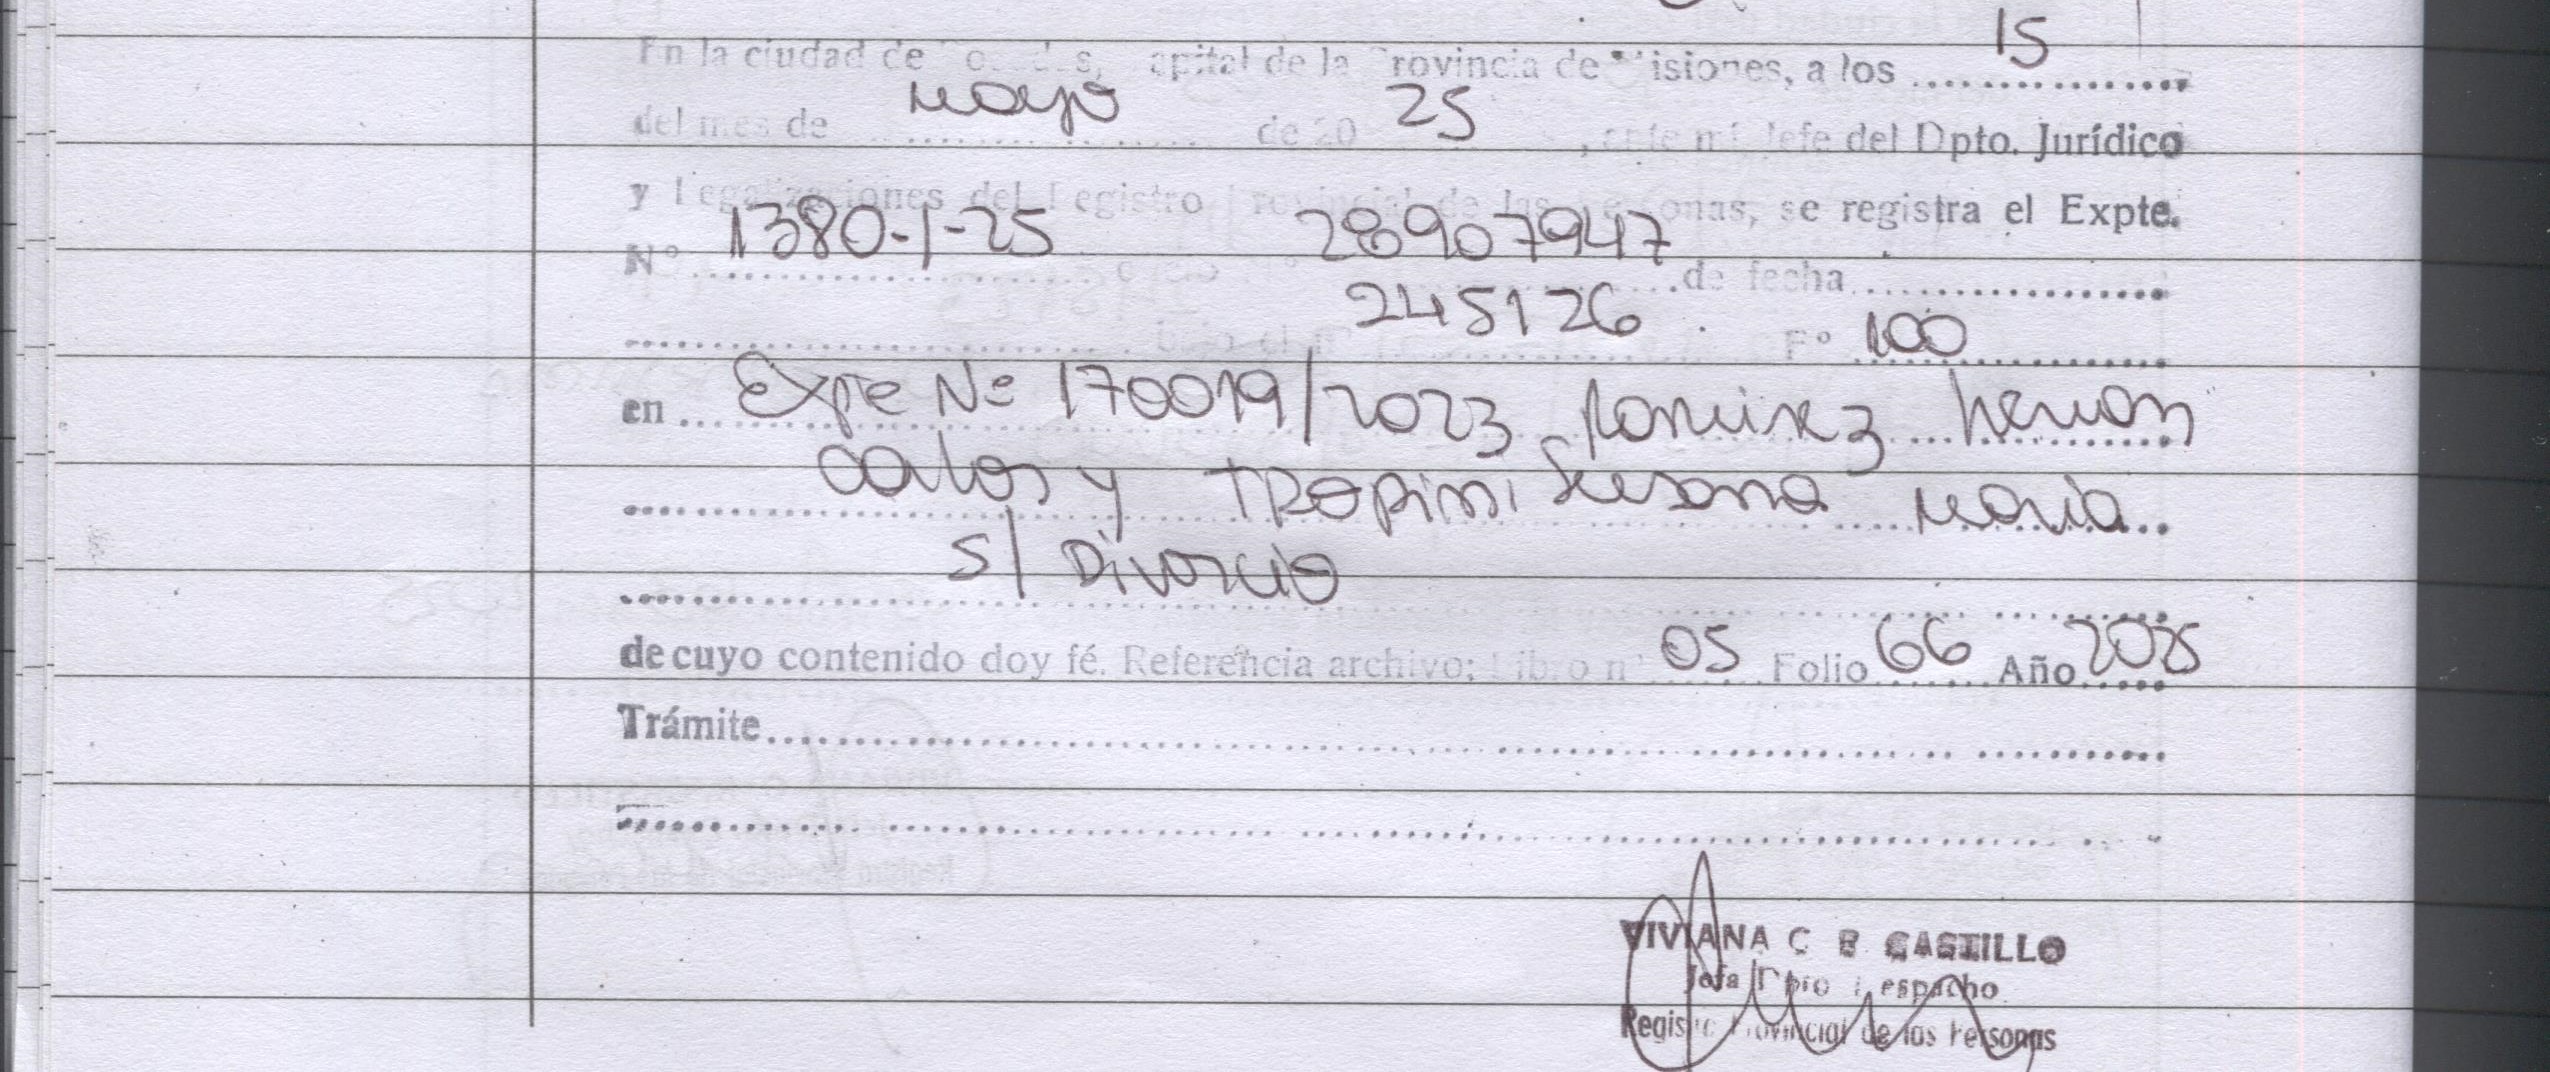 15
En la ciudad de Posadas, Capital de la Provincia de Misiones, a los ..............
mayo 25
del mes de .................... de 20 , ante mí Jefe del Dpto. Jurídico
y Legalizaciones del Registro Provincial de las Personas, se registra el Expte.
1380-1-25 28907947
N° .................... de fecha ..................
245126
.......................... bajo el n° F° 100
en Expe Nº 170019/2023 Ramirez Hernan
Carlos y TROPINI Susana Maria
s/ Divorcio
de cuyo contenido doy fé. Referencia archivo; Libro n° 05 Folio 66 Año 2025
Trámite
VIVIANA C B CASTILLO
Jefa Dpto Despacho
Registro Provincial de las Personas